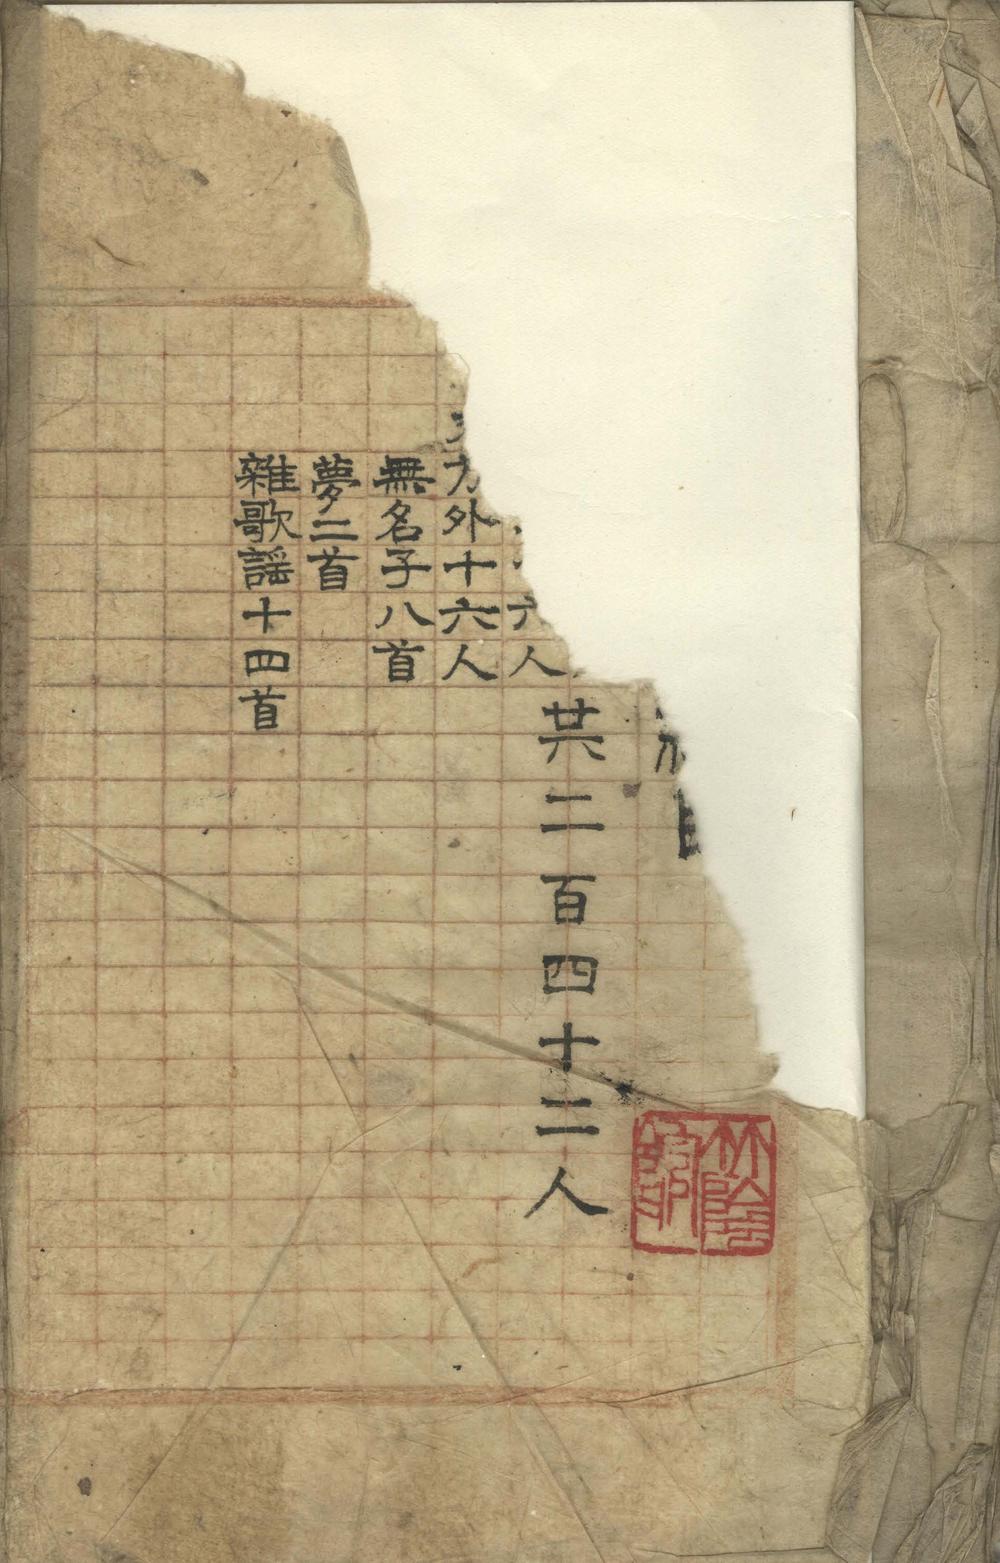 共二百四十二人
六人
方外十六人
無名子八首
夢二首
雜歌謡十四首
竹陰